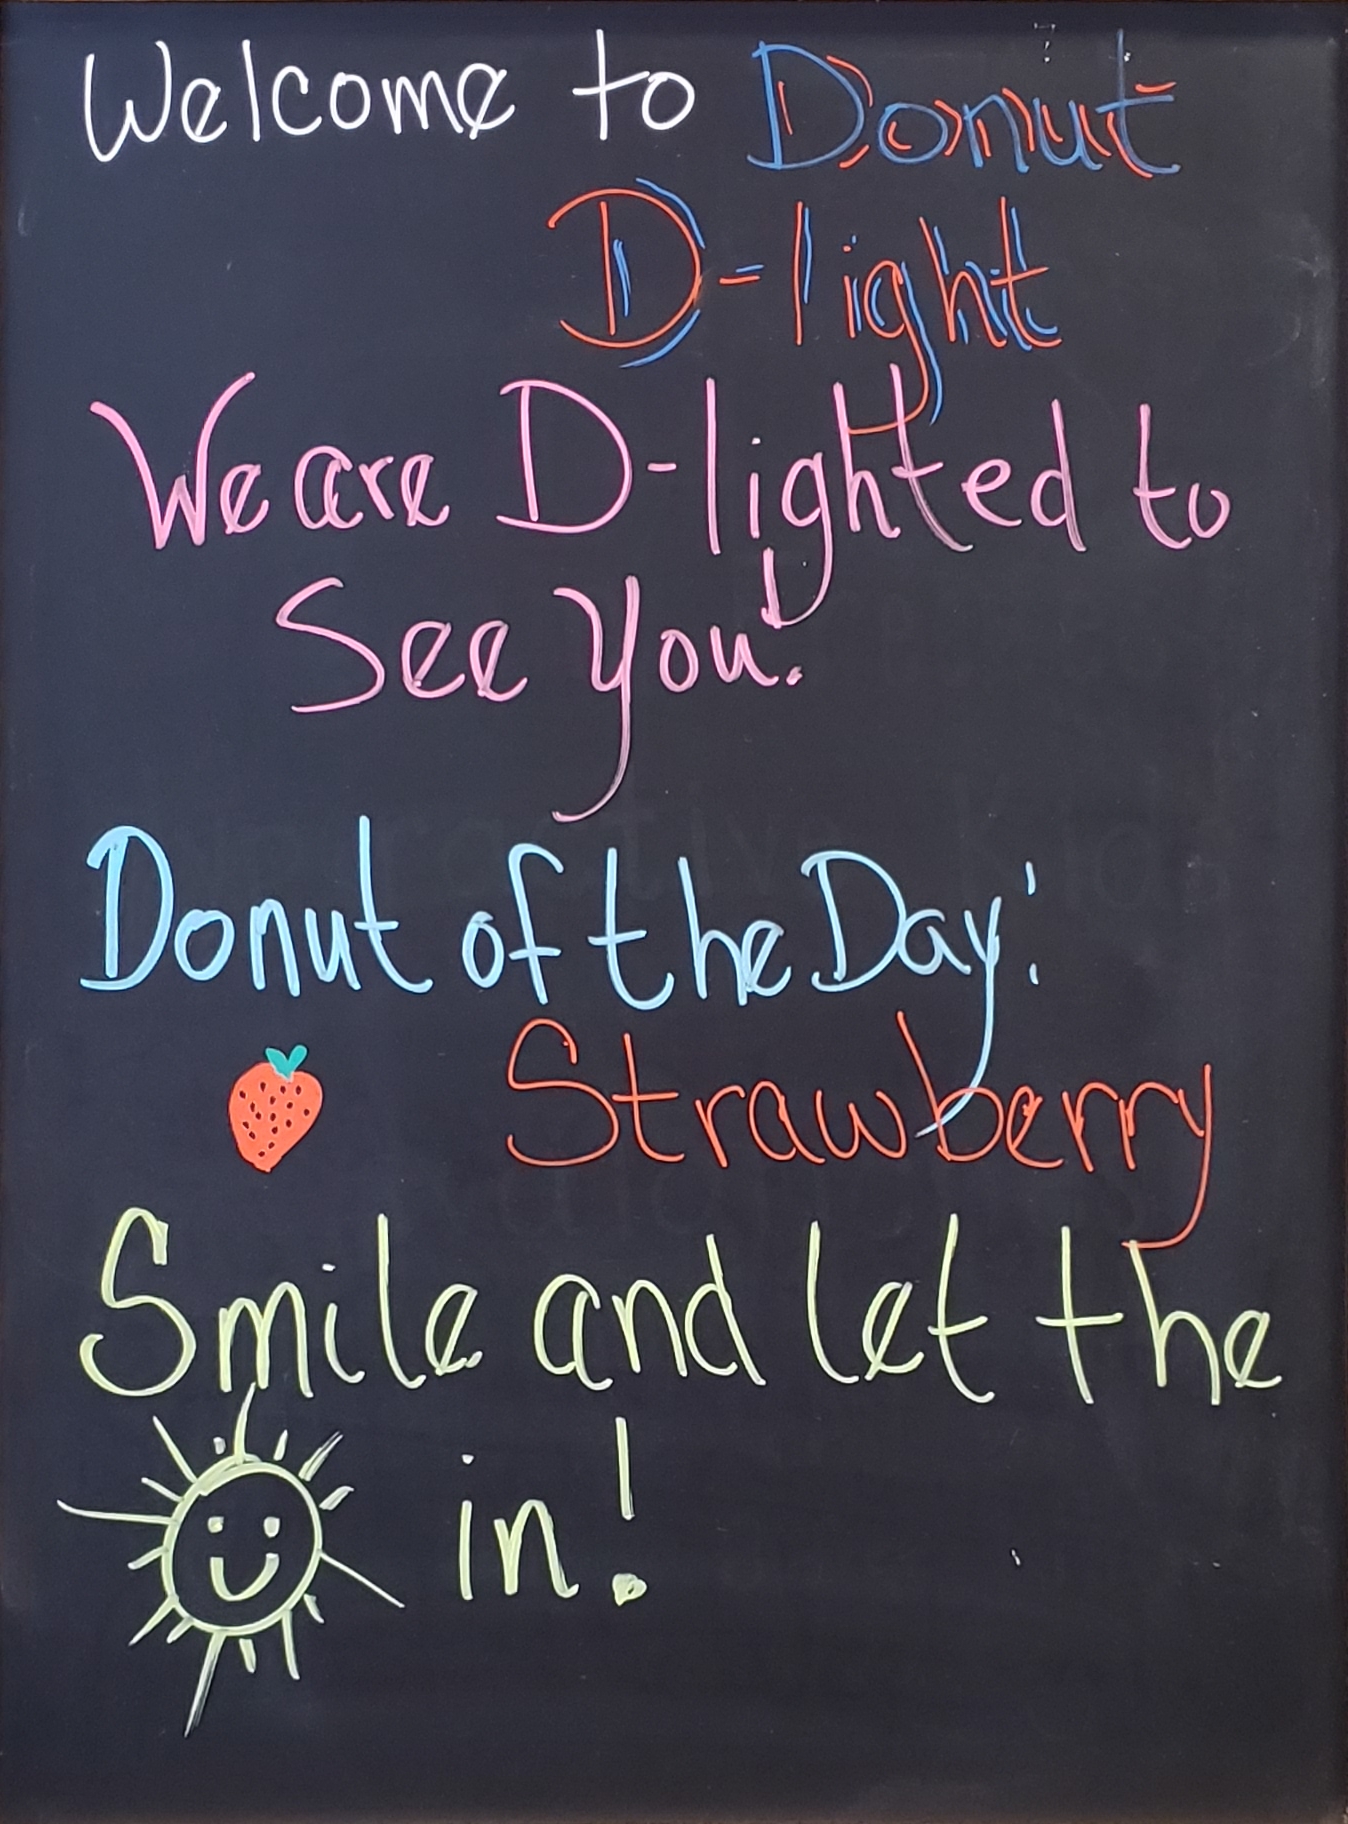 Welcome to Donut
D-light
We are D-lighted to
See You!
Donut of the Day:
Strawberry
Smile and let the
in!